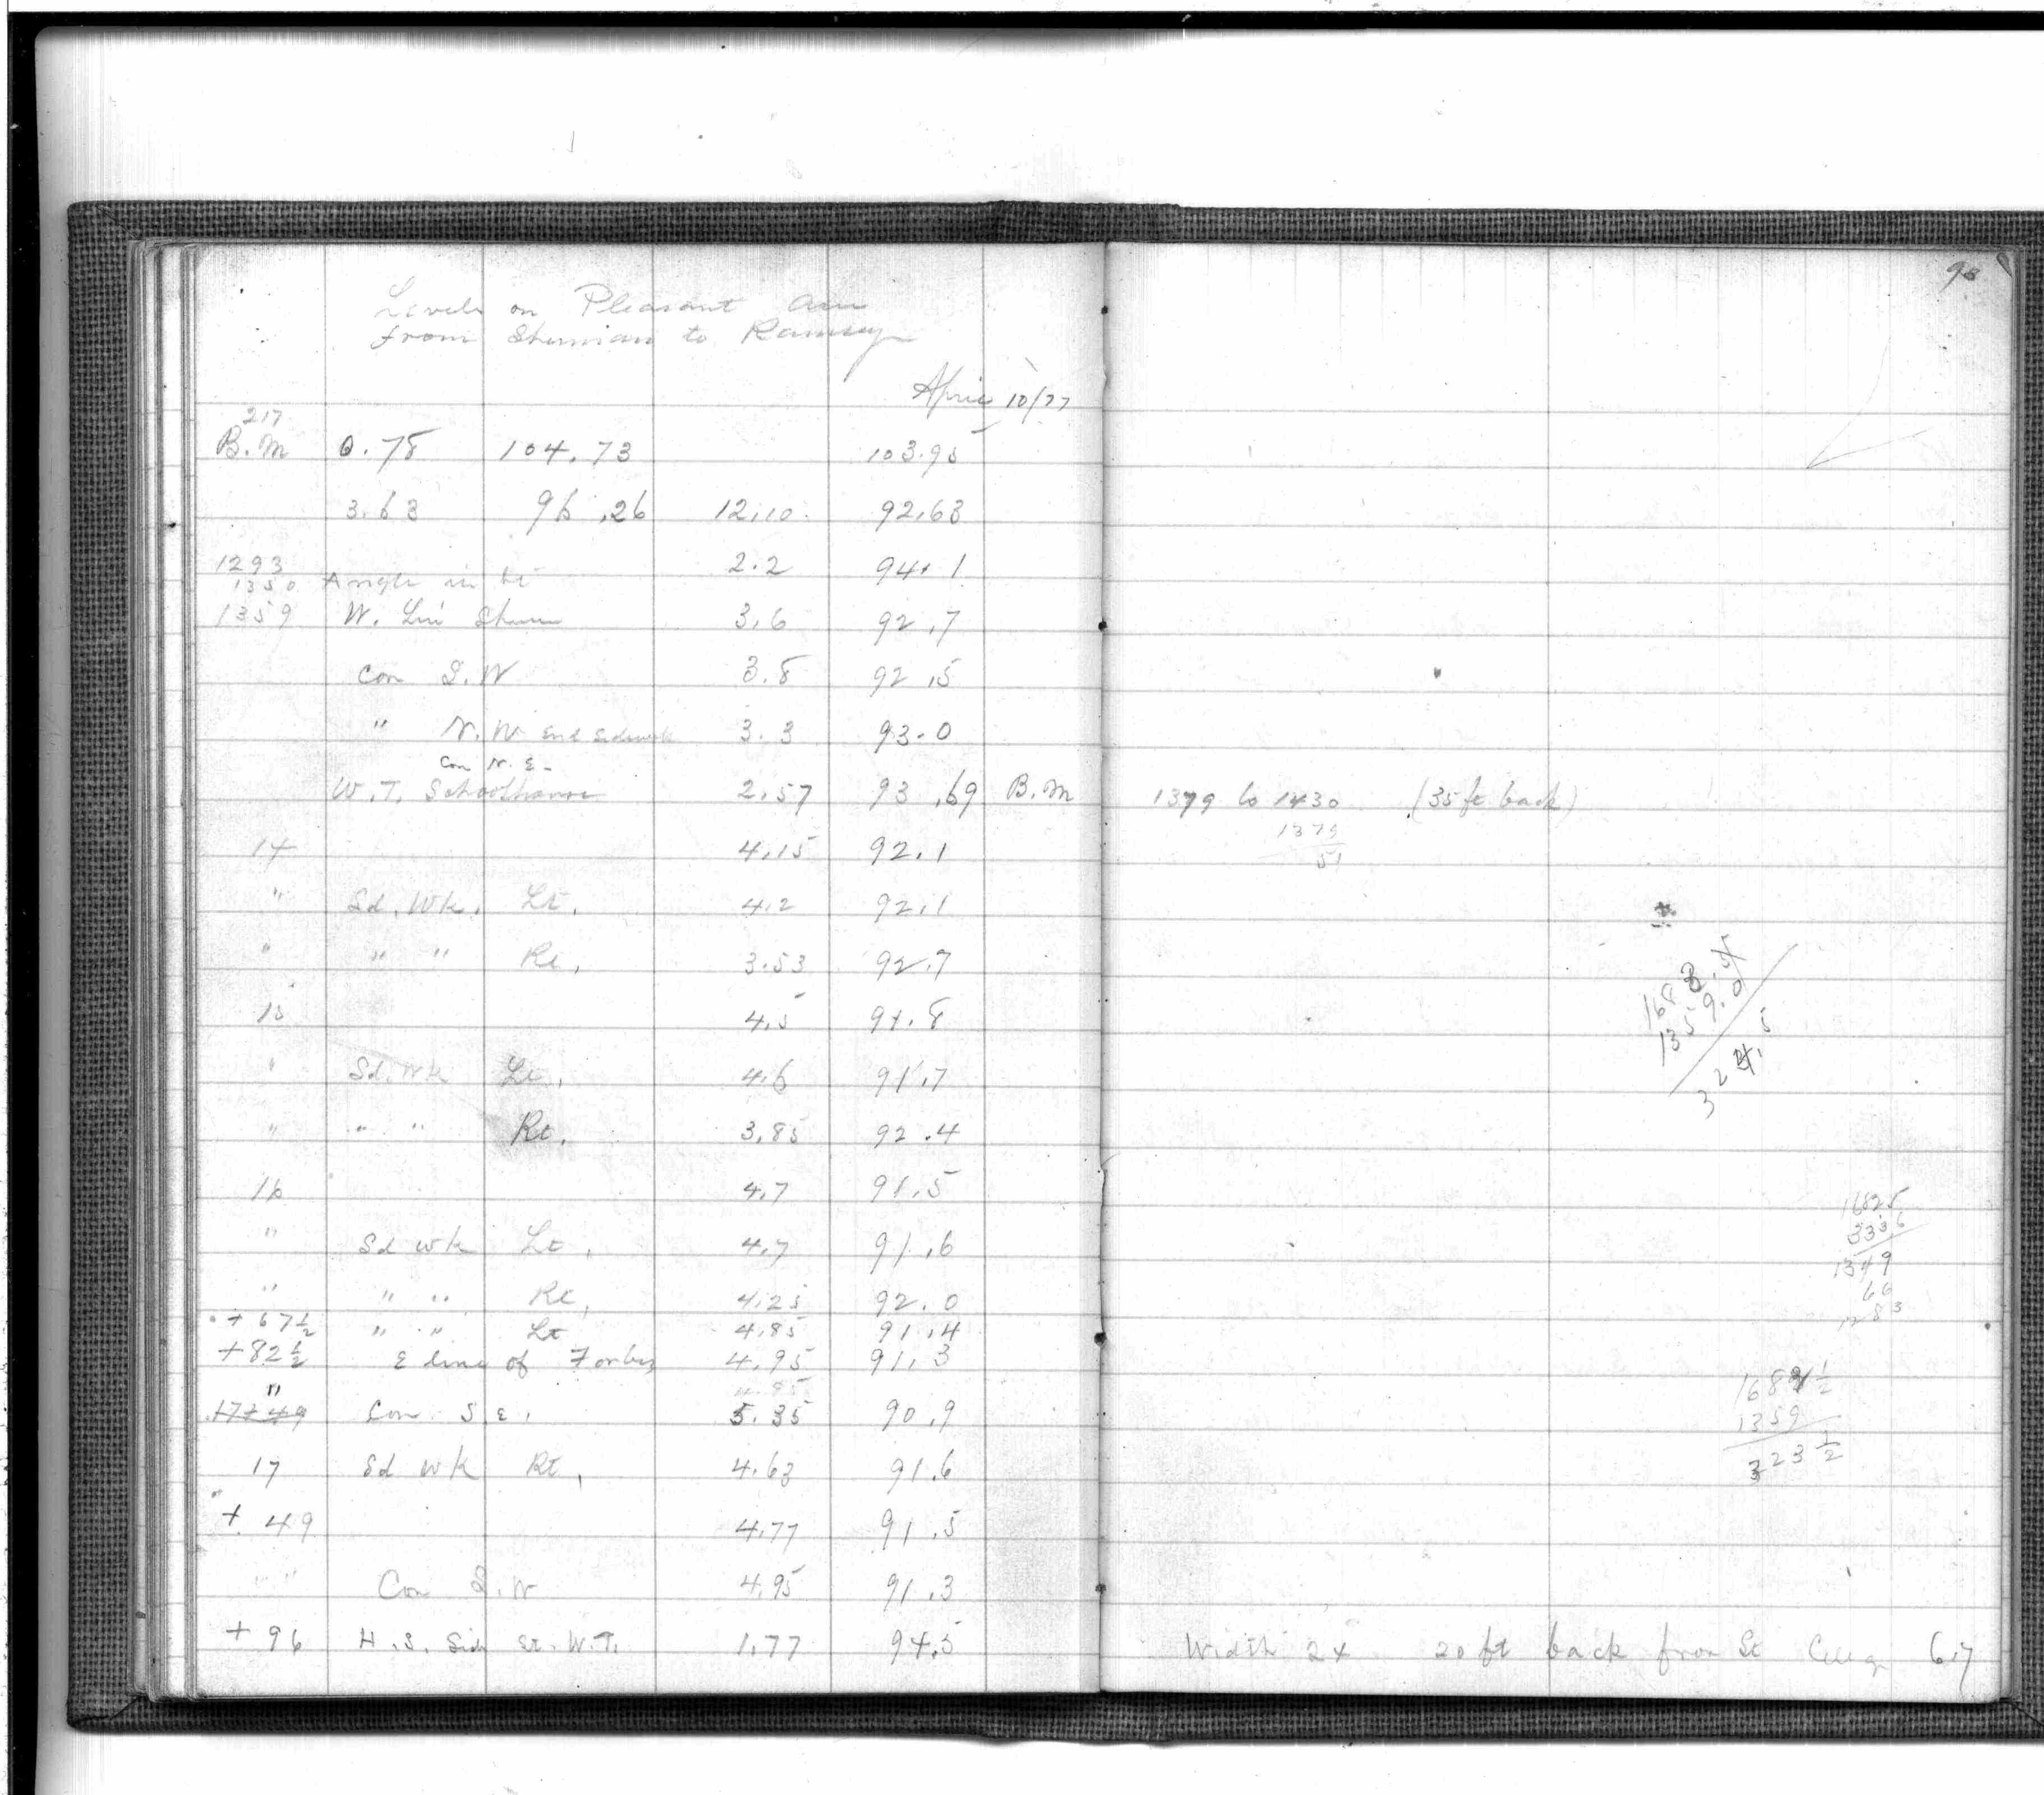 Levels on Pleasant Ave
from Sherman to Ramsey
April 10/77
217
B.M 0.78 104.73 103.95
3.63 96.26 12.10 92.63
1293 2.2 94.1
1350 Angle in St
1359 W. Lin Sherm 3.6 92.7
Cor S.W 3.8 92.5
" N.W End Sidewalk 3.3 93.0
Cor N.E.
W.T. Schoolhouse 2.57 93.69 B.M
14 4.15 92.1
" Sd. Wk. Lt. 4.2 92.1
" " " Rt. 3.53 92.7
15 4.5 91.8
" Sd. Wk Lt. 4.6 91.7
" " " Rt. 3.85 92.4
16 4.7 91.5
" Sd Wk Lt. 4.7 91.6
" " " Rt. 4.25 92.0
+67½ " " Lt 4.85 91.4
+82½ E line of Forbes 4.95 91.3
4.95
" 17+49 Cor. S E. 5.35 90.9
17 Sd Wk Rt. 4.63 91.6
+ 49 4.77 91.5
" " Cor S.W 4.95 91.3
+ 96 H.S. Side St. W.T. 1.77 94.5
98
1379 to 1430 (35 ft back)
1379
51
1683.5
1359.0
324.5
1682.5
333.6
1349
66
1283
1682½
1359
323½
Width 24 20 ft back from St 6.7